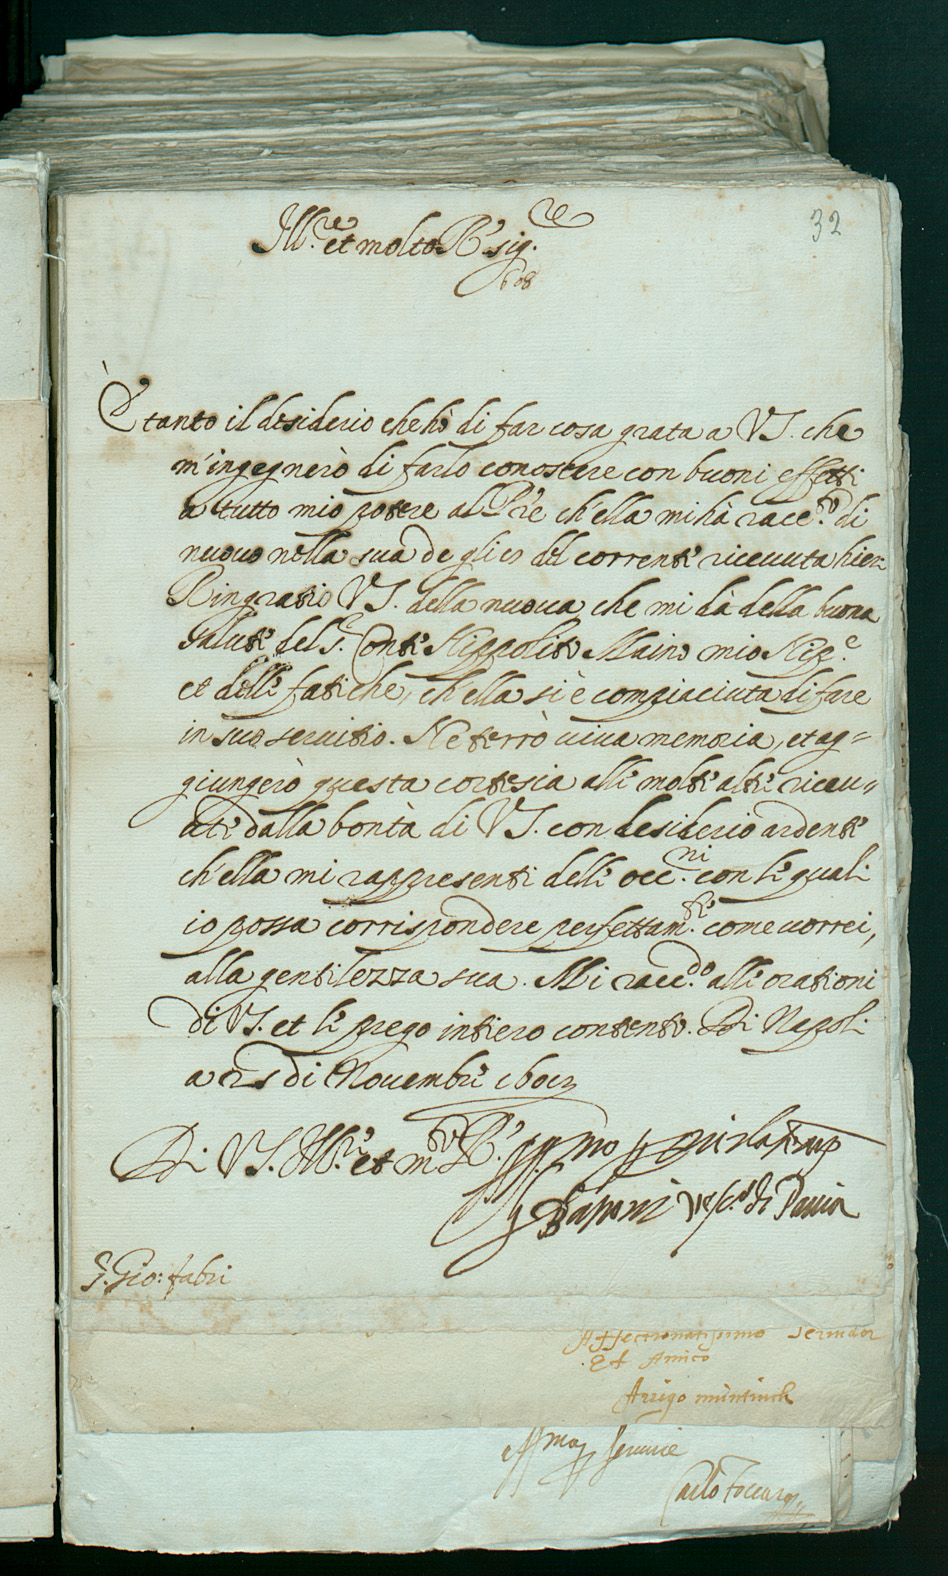 32
Ill.re et molto R.' sig.re
608
È tanto il desiderio che hò di far cosa grata a VS. che
m'ingegnerò di farlo conoscere con buoni effetti
a tutto mio potere al P're ch'ella mi hà racc.to di
nuovo nella sua de gli del corrente ricevuta hieri
Ringratio VS. della nuova che mi dà della buona
salute del S.r Conte Hippolito Maino mio Nip.e
et delle fatiche, ch'ella si è compiaciuta di fare
in suo servitio. Ne terrò viva memoria, et ag=
giungerò questa cortesia alle molte altre riceu=
ate dalla bontà di VS. con desiderio ardente
ch'ella mi rappresenti delle occ.ni con le quali
io possa corrispondere perfettam.te come vorrei,
alla gentilezza sua. Mi racc.do alle orationi
di VS. et le prego intiero contento. Di Napoli
a 25 di Novembre
Di VS. Ill.re et m.to R.'
vesc.o di Pavia
S. Gio: fabri
Affectionatissimo servidor
Et Amico
Arrigo
Aff.mo servire
Carlo